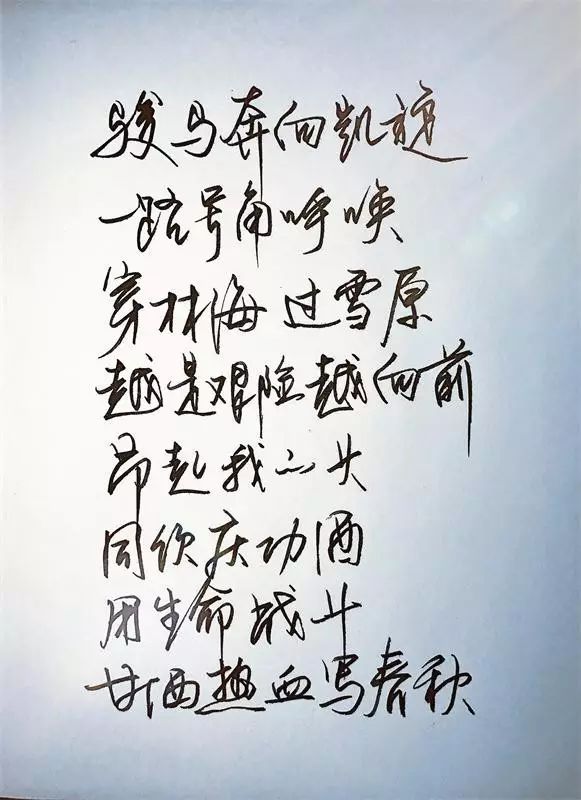 骏马奔向凯旋
一路号角呼唤
穿林海 过雪原
越是艰险越向前
昂起我的头
同饮庆功酒
用生命战斗
甘洒热血写春秋